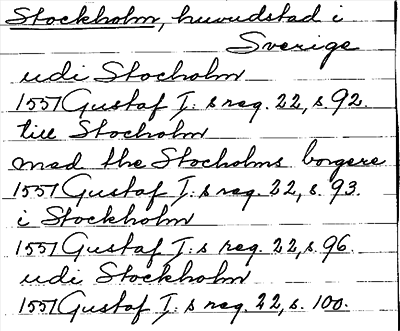 Stockholm, huvudstad i
Sverige
udi Stocholm
1551 Gustaf I:s reg. 22, s. 92.
till Stocholm
mad the Stocholms borgere
1551 Gustaf I:s reg. 22, s. 93.
i Stockholm
1551 Gustaf I:s reg. 22, s. 96.
udi Stockholm
1551 Gustaf I:s reg. 22, s. 100.